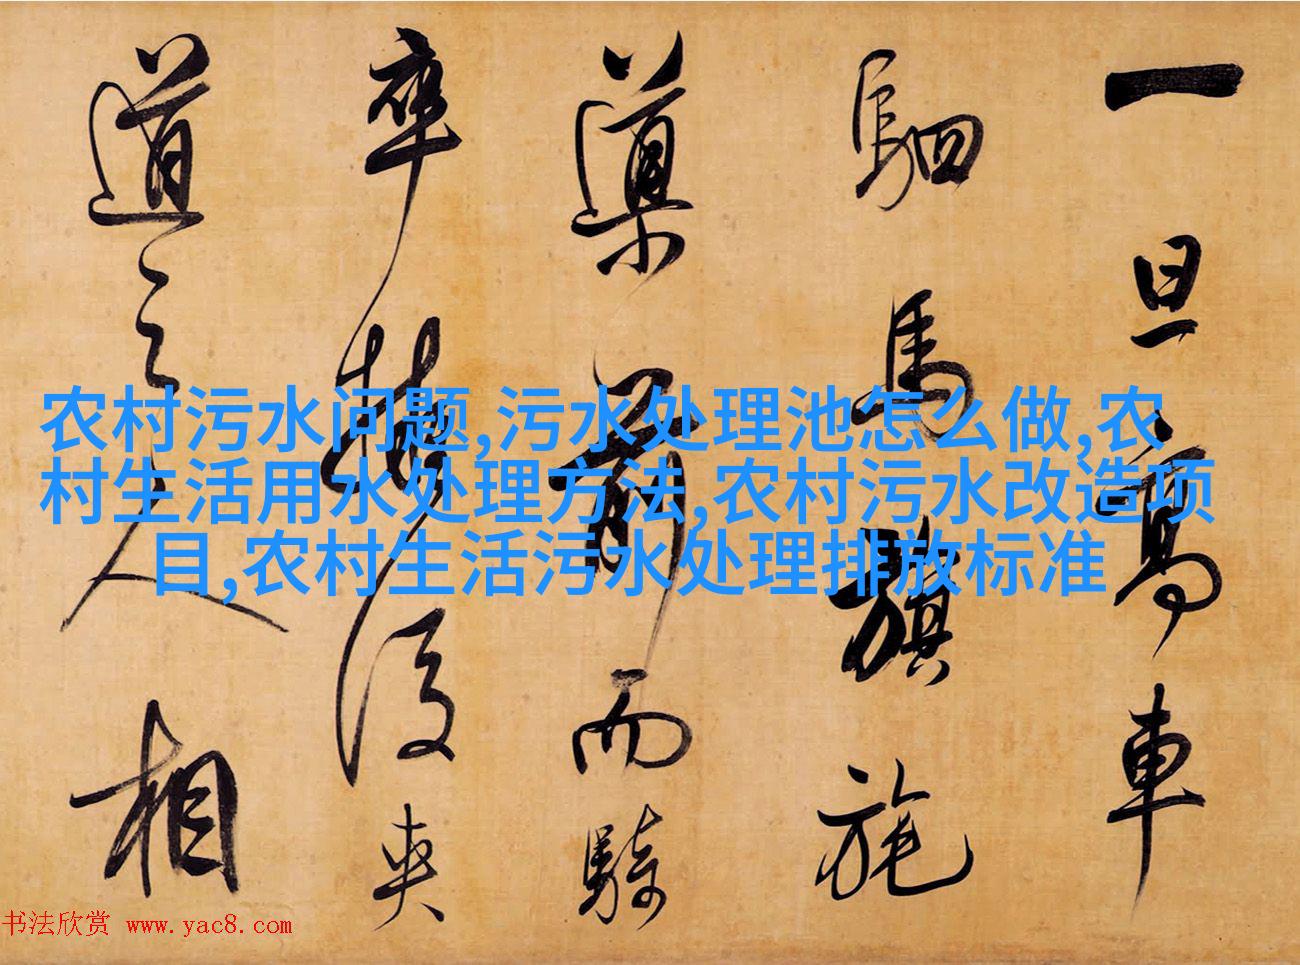 一旦高車
駟馬旗旄
導前而騎
卒擁後夾
道之人相
农村污水问题,污水处理池怎么做,农
村生活用水处理方法,农村污水改造项
目,农村生活污水处理排放标准
书法欣赏 www.yac8.com